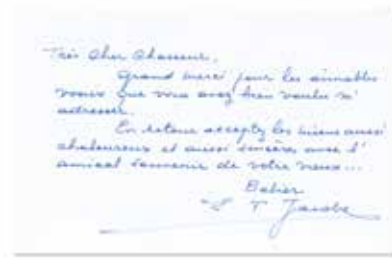 Très Cher Chasseur,
Grand merci pour les aimables
voeux que vous avez bien voulu m'
adresser.
En retour acceptez les miens aussi
chaleureux et aussi sincères avec l'
amical souvenir de votre vieux...
T Jacobs